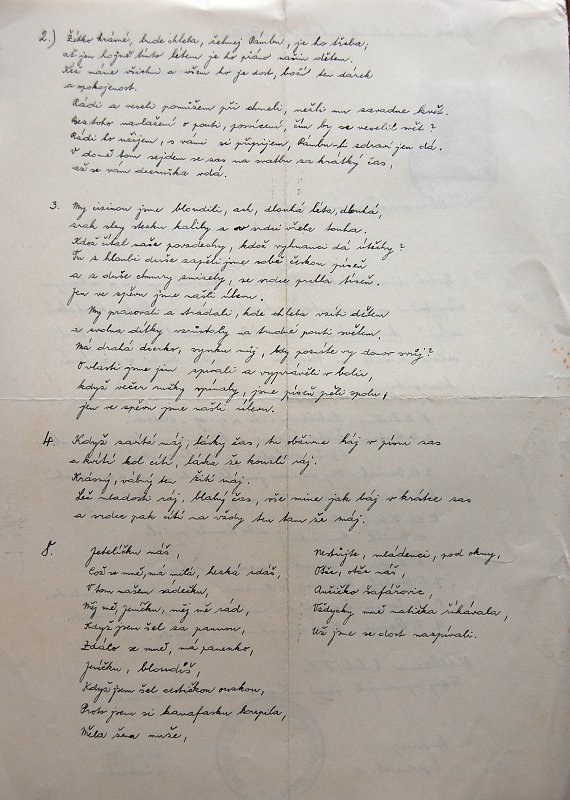 2.) Žitko krásné, bude chleba, žehnej Pámbu, je ho třeba;
ať jen hojně tímto létem je ho plno našim dětem.
Kéž máme všichni a všem ho je dost, boží ten dárek
a spokojenost.
Rádi a veseli pomůžem při chmeli, nežli mu zavadne květ.
Bez toho navlažení o pouti, posvícení, čím by se veselil svět?
Rádi ho užijem, s vámi si připijem, Pámbu-li zdraví jen dá.
V domě tom sejdem se zas na svatbu za krátký čas,
až se vám dceruška vdá.
3. My cizinou jme bloudili, ach, dlouhá léta, dlouhá,
zrak slzy stesku kalily a v srdci vřele touha.
Kdož čítal naše povzdechy, kdož vyhnanci dá útěchy?
Tu z hloubi duše zapěli jsme sobě českou píseň
a z duše chmury zmizely, se srdce padla tíseň.
Jen ve zpěvu jsme našli úlevu.
My pracovali a strádali, kde chleba vzíti dětem
a zvolna dítky vzrůstaly na trudné pouti světem.
Má drahá dcerko, synku můj, kdy poznáte vy domov svůj?
O vlasti jsme jim zpívali a vyprávěli v bolu,
když večer ručky spínaly, jsme píseň pěli spolu,
jen ve zpěvu jsme našli úlevu.
4. Když zavítá máj, lásky čas, tu obživne háj v písni zas
a kvítí kol cítí, láska že kouzlí ráj.
Krásný, vábný ten žití máj.
Leč mladosti ráj, blahý čas, vše mine jak báj v krátce zas
a srdce pak cítí na vždy ten tam že máj.
8. Jetelíčku náš,
Což se mně, má milá, hezká zdáš,
V tom našem sadečku,
Měj mě, jeníčku, měj mě rád,
Když jsem šel za pannou,
Zdálo se mně, má panenko,
Jeníčku, bloudíš,
Když jsem šel cestičkou ouzkou,
Proto jsem si kanafasku koupila,
Měla žena muže,
Nestůjte, mládenci, pod okny,
Otče, otče náš,
Ančičko šafářovic,
Vždycky mně matička říkávala,
Už jsme se dost nazpívali.